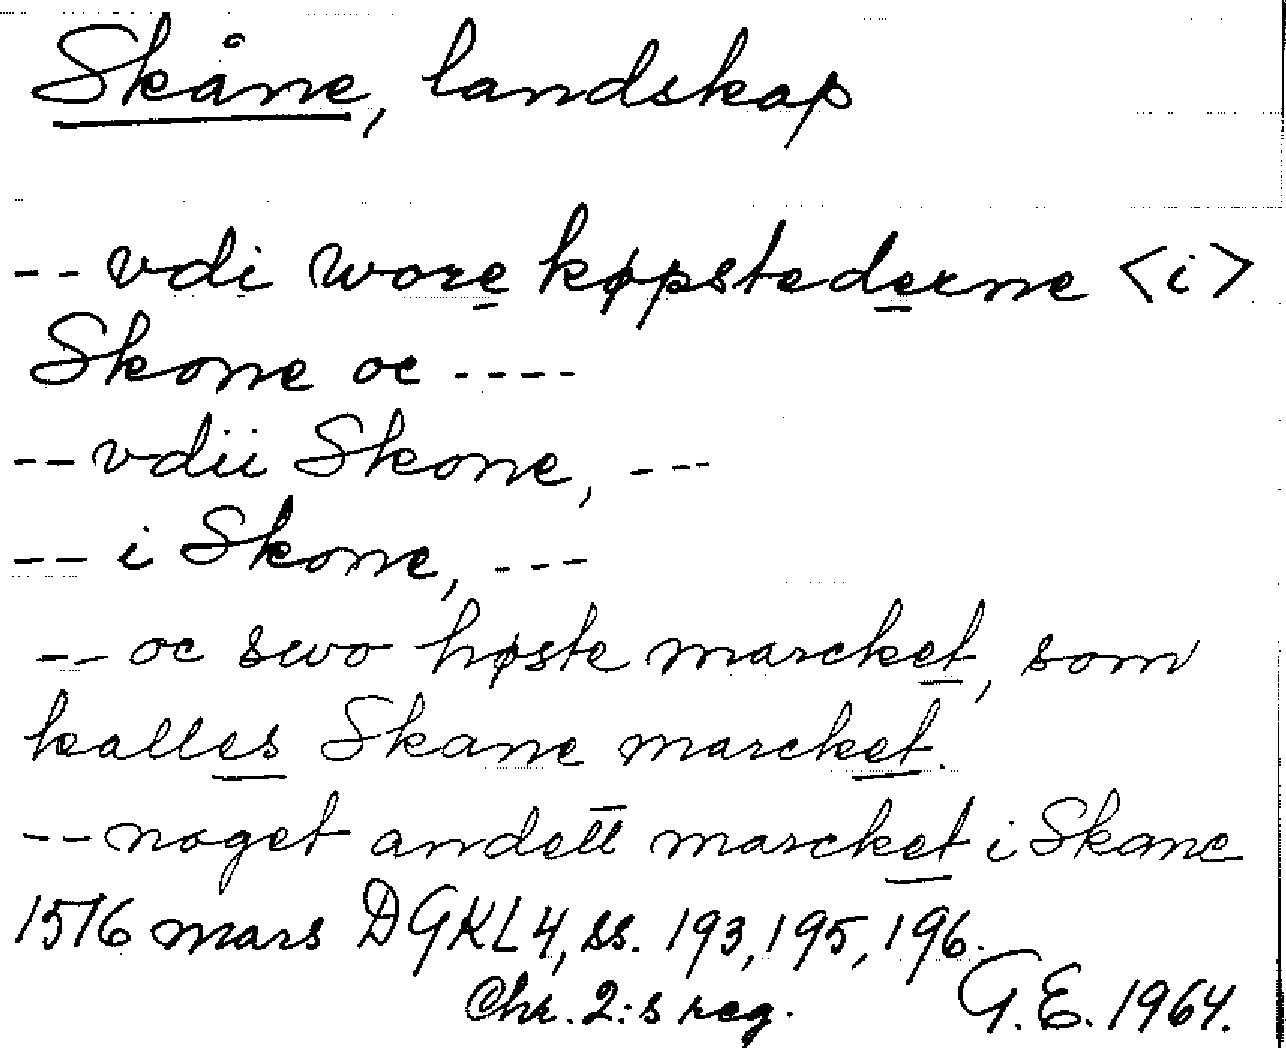 Skåne, landskap
-- vdi wore køpstederne <i>
Skone oc ----
-- vdii Skone, ---
-- i Skone, ---
-- oc swo høste marcket, som
kalles Skane marcket.
-- noget andett marcket i Skane
1516 mars DGKL 4, ss. 193, 195, 196.
Chr. 2:s reg. G.E. 1964.